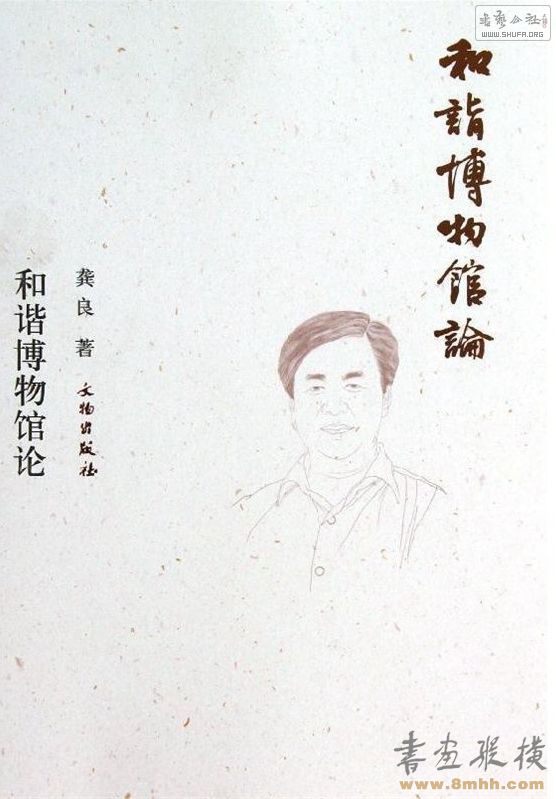 書藝公社
WWW.SHUFA.ORG
和諧博物館論
龚良 著
文物出版社
和谐博物馆论
書畫縱橫
www.8mhh.com